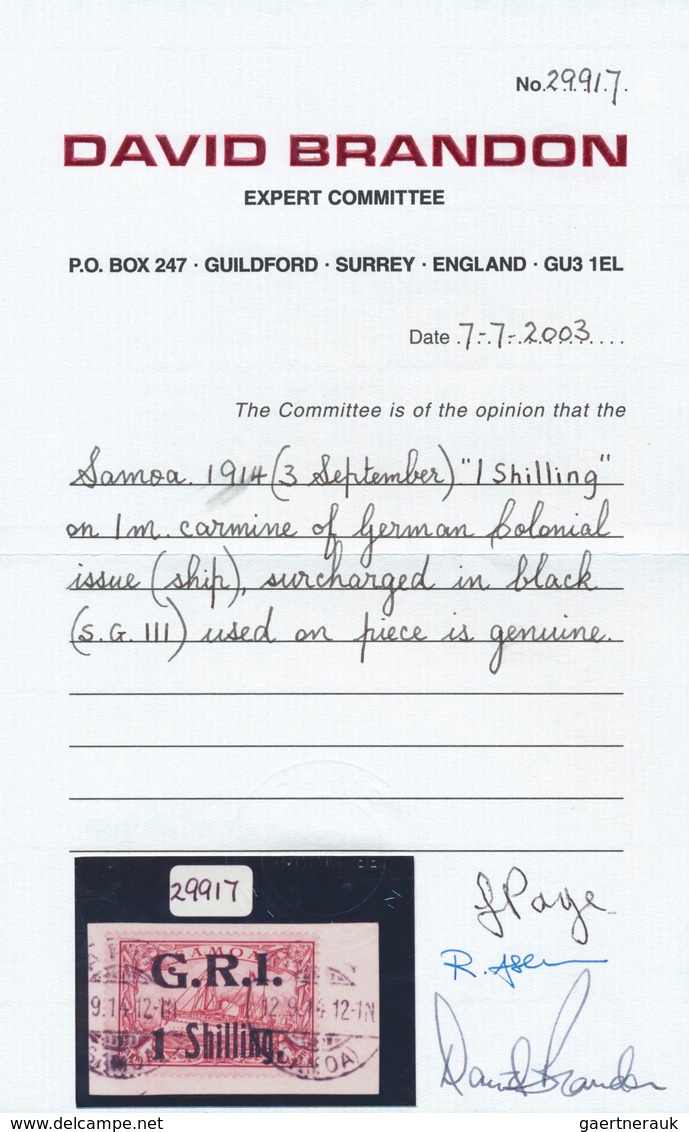 No. 29917.
DAVID BRANDON
EXPERT COMMITTEE
P.O. BOX 247 · GUILDFORD · SURREY · ENGLAND · GU3 1EL
Date 7-7-2003
The Committee is of the opinion that the
Samoa. 1914 (3 September) "1 Shilling"
on 1m. carmine of German Colonial
issue (ship), surcharged in black
(S.G. 111) used on piece is genuine.
29917
SAMOA
G.R.I.
9.14 12-1N 12.9.14 12-1N
1 Shilling.
OA)
J Page
R.
David Brandon
www.delcampe.net
gaertnerauk